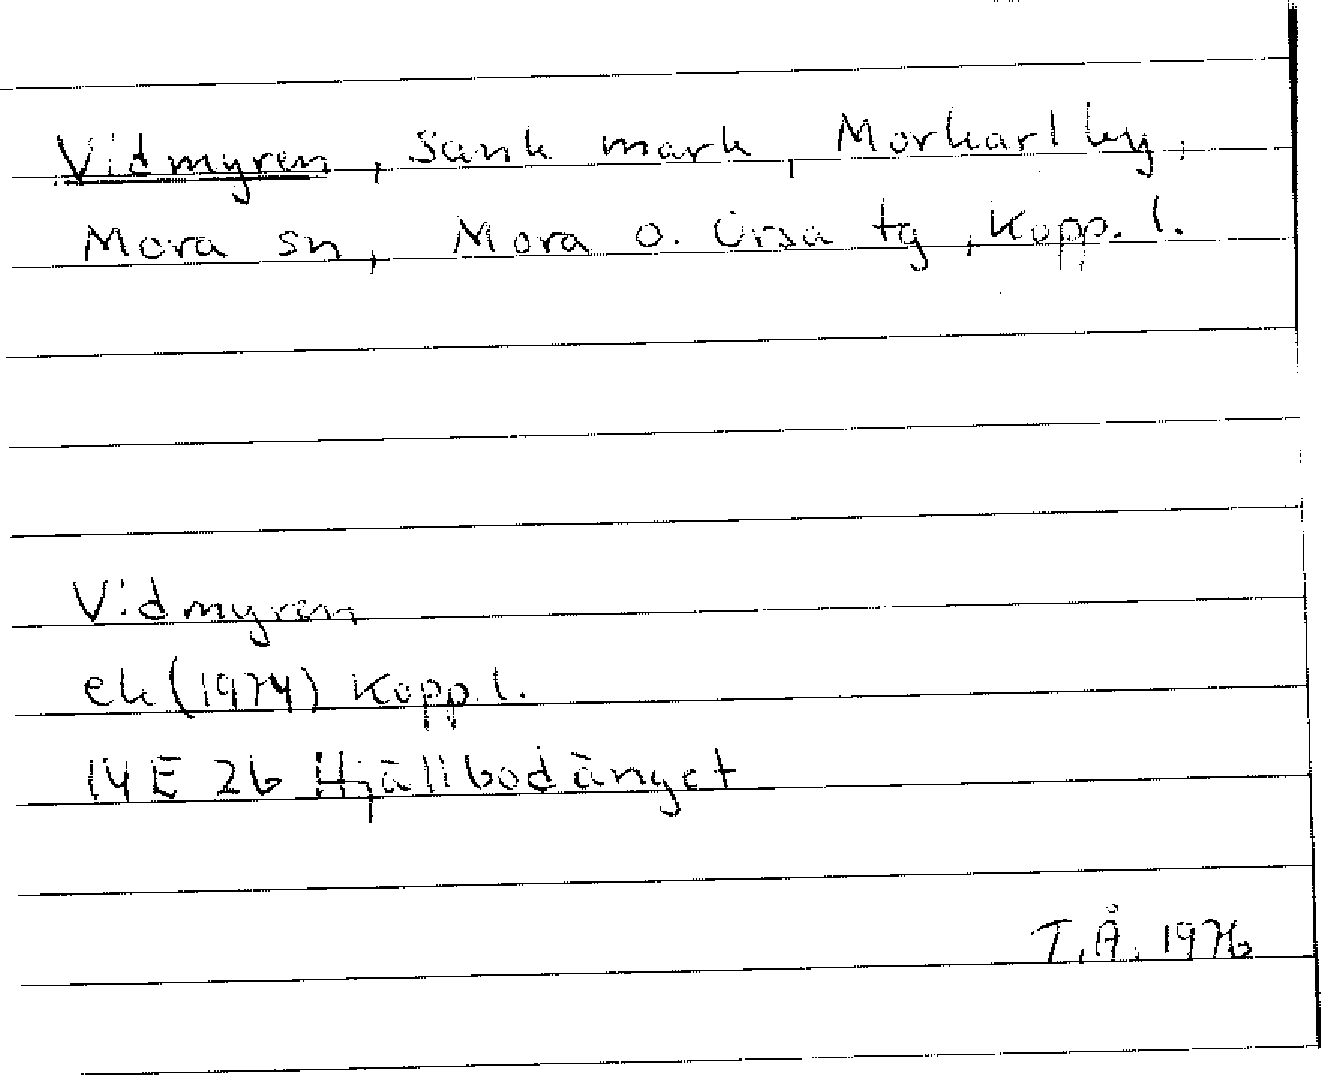 Vidmyren, Sank mark, Morkarlby,
Mora sn, Mora o. Orsa tg, Kopp. l.
Vidmyren
ek (1974) Kopp. l.
14 E 2b Hjällbodänget
T.Å. 1976